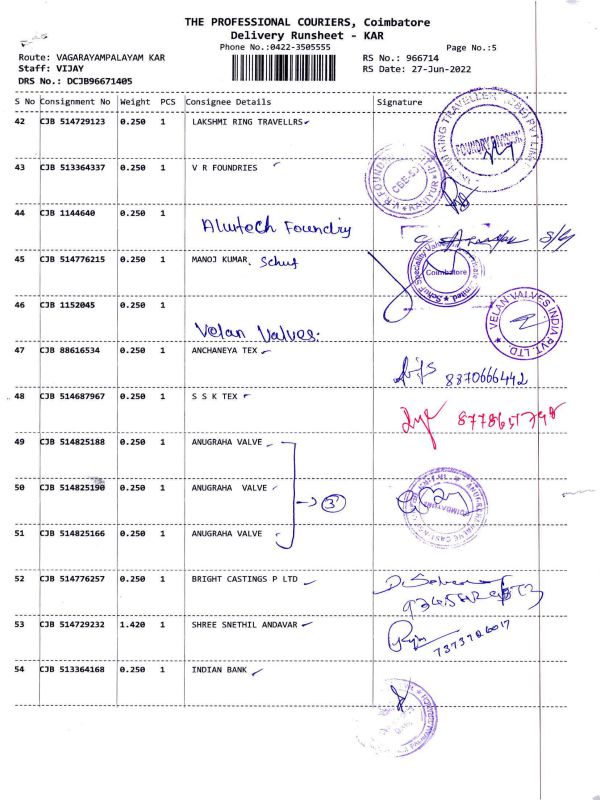 THE PROFESSIONAL COURIERS, Coimbatore
Delivery Runsheet - KAR
Phone No.:0422-3505555
Page No.:5
Route: VAGARAYAMPALAYAM KAR
RS No.: 966714
Staff: VIJAY
RS Date: 27-Jun-2022
DRS No.: DCJB96671405
S No Consignment No Weight PCS Consignee Details Signature
42 CJB 514729123 0.250 1 LAKSHMI RING TRAVELLRS
43 CJB 513364337 0.250 1 V R FOUNDRIES
44 CJB 1144640 0.250 1
Alutech Foundry
45 CJB 514776215 0.250 1 MANOJ KUMAR. Schuf
Coimbatore
46 CJB 1152045 0.250 1
Velan Valves.
VELAN VALVES INDIA PVT. LTD.
47 CJB 88616534 0.250 1 ANCHANEYA TEX
8870666442
48 CJB 514687967 0.250 1 S S K TEX
49 CJB 514825188 0.250 1 ANUGRAHA VALVE
50 CJB 514825190 0.250 1 ANUGRAHA VALVE
3
51 CJB 514825166 0.250 1 ANUGRAHA VALVE
52 CJB 514776257 0.250 1 BRIGHT CASTINGS P LTD
53 CJB 514729232 1.420 1 SHREE SNETHIL ANDAVAR
7373726017
54 CJB 513364168 0.250 1 INDIAN BANK